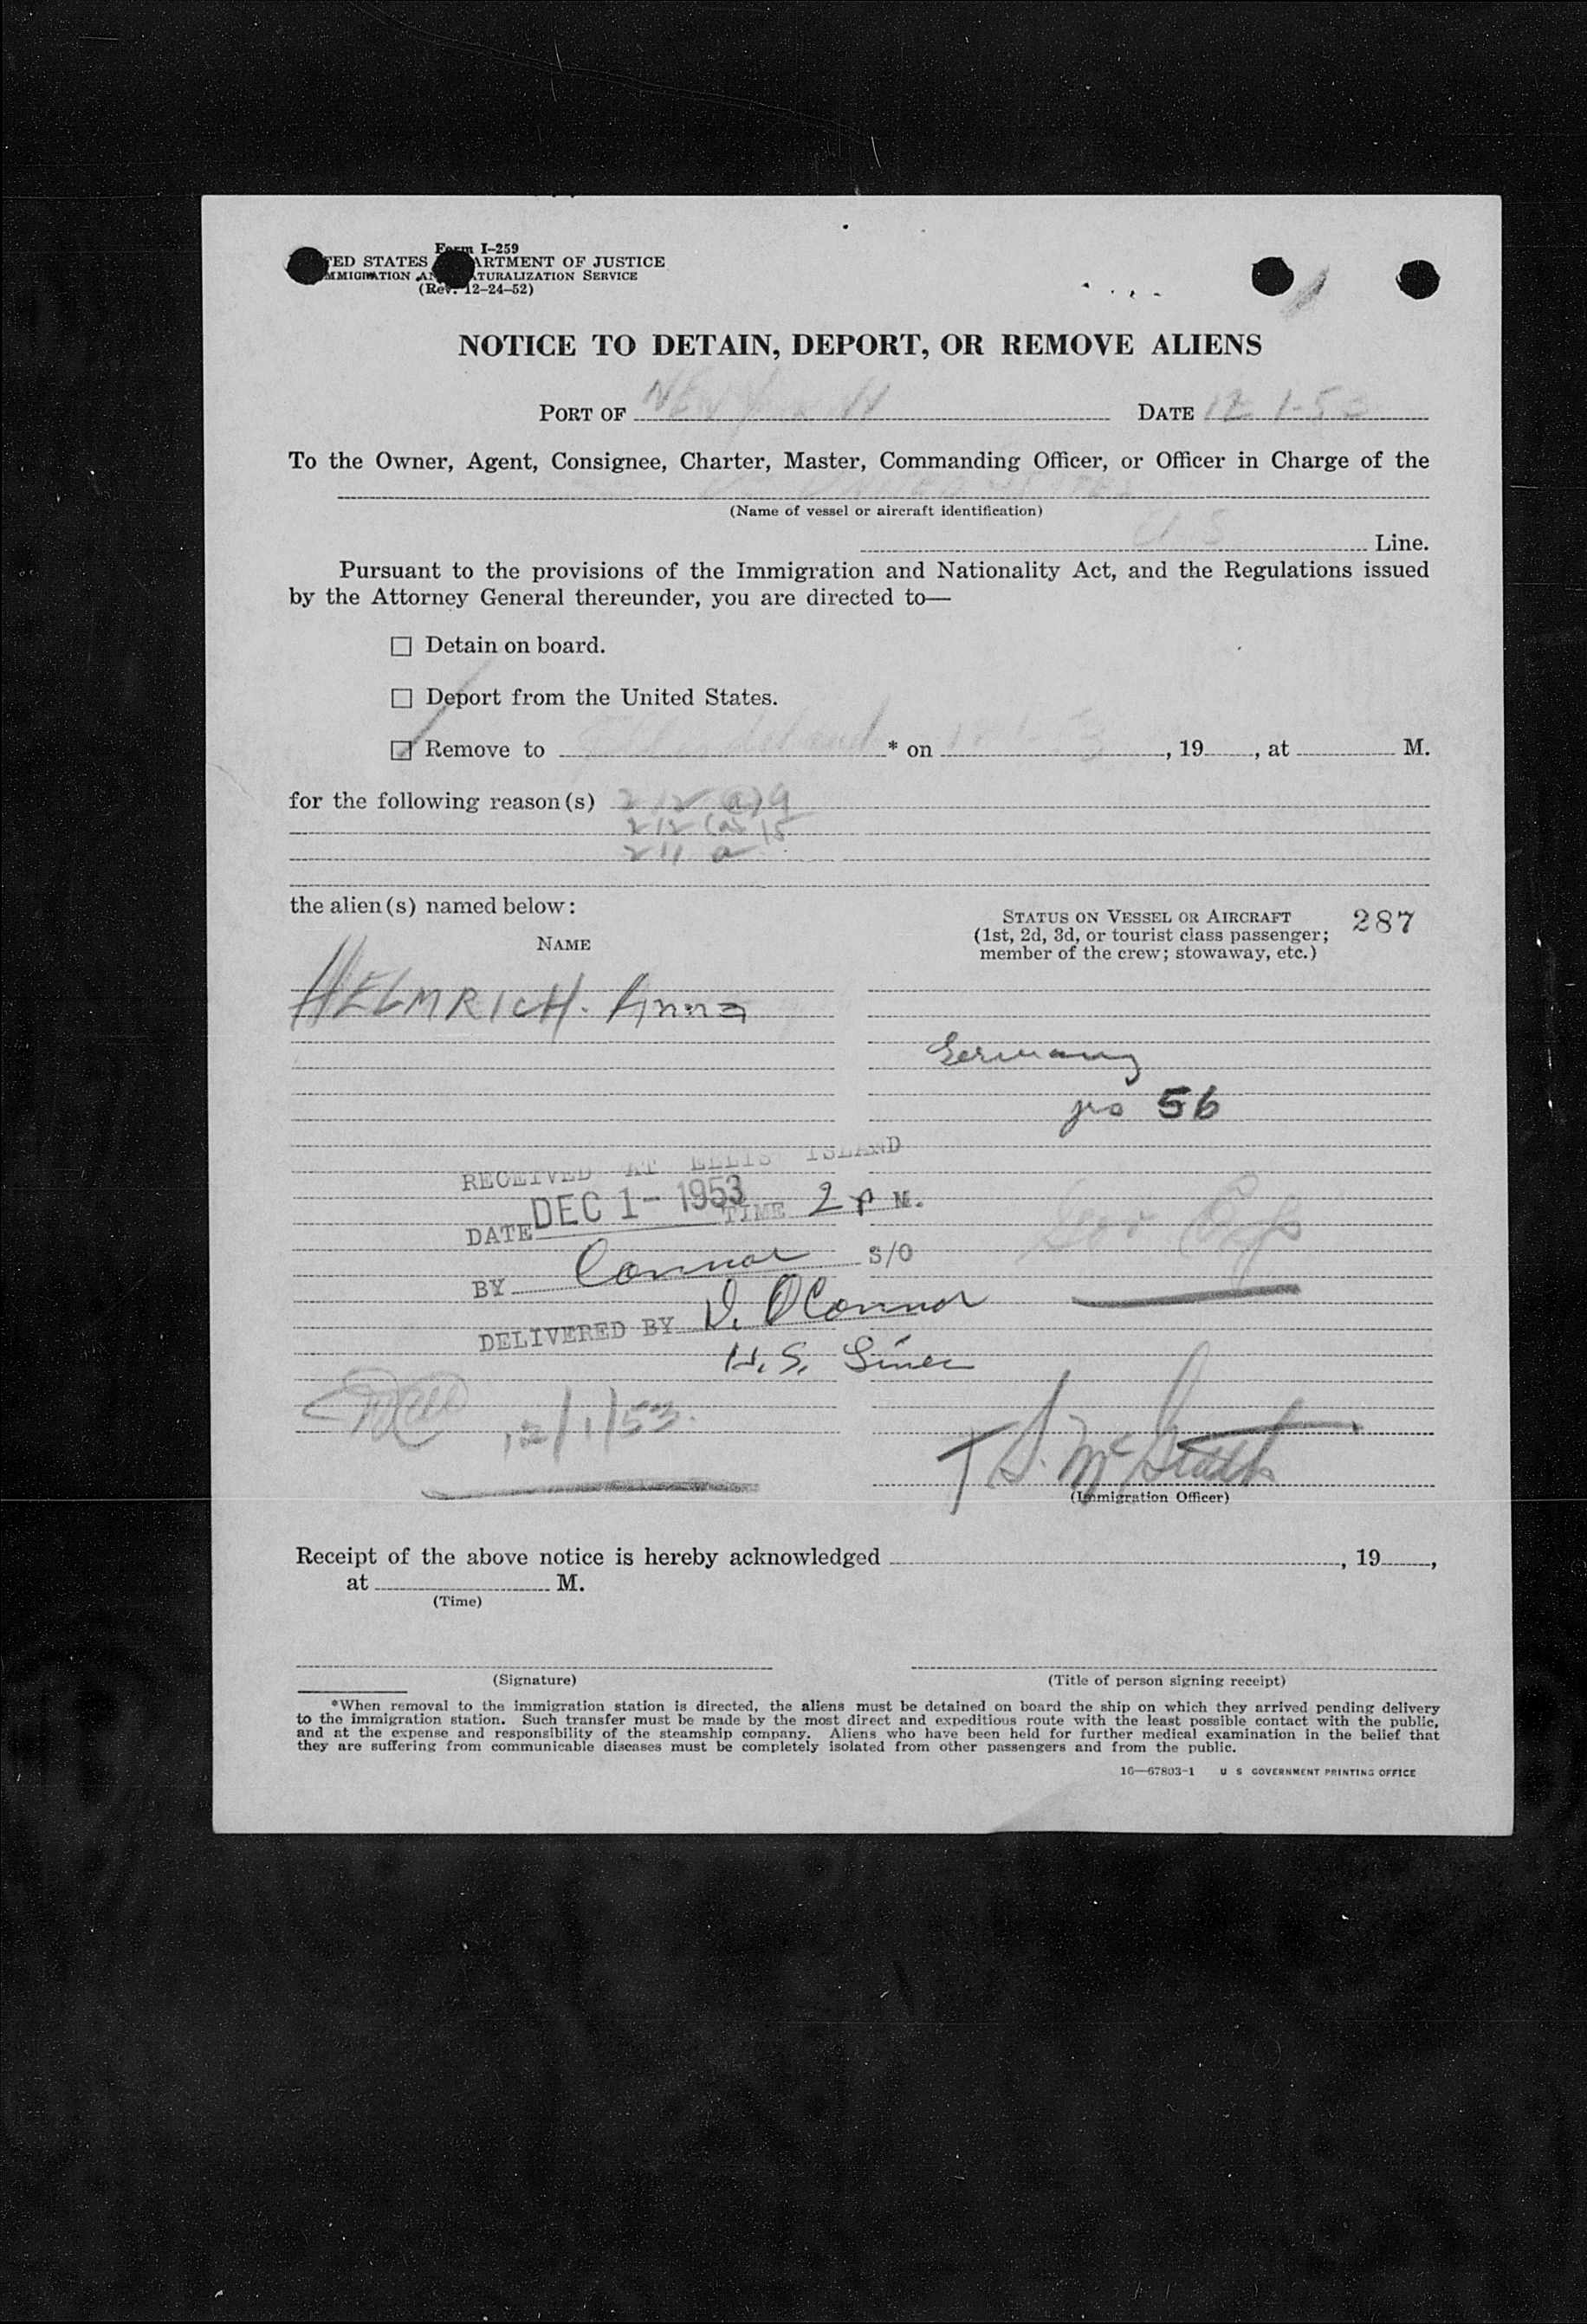 Form I-259
UNITED STATES DEPARTMENT OF JUSTICE
IMMIGRATION AND NATURALIZATION SERVICE
(Rev. 12-24-52)
NOTICE TO DETAIN, DEPORT, OR REMOVE ALIENS
PORT OF New York DATE 12-1-53
To the Owner, Agent, Consignee, Charter, Master, Commanding Officer, or Officer in Charge of the
UNITED STATES
(Name of vessel or aircraft identification)
U S Line.
Pursuant to the provisions of the Immigration and Nationality Act, and the Regulations issued
by the Attorney General thereunder, you are directed to—
☐ Detain on board.
☐ Deport from the United States.
☑ Remove to Ellis Island * on 12-1-53, 19, at M.
for the following reason(s) 212 (a) 9
212 (a) 15
211 a
the alien(s) named below:
NAME
STATUS ON VESSEL OR AIRCRAFT 287
(1st, 2d, 3d, or tourist class passenger;
member of the crew; stowaway, etc.)
HELMRICH. Anna
Germany
56
RECEIVED AT ELLIS ISLAND
DATE DEC 1 - 1953 TIME 2 P M.
BY Connor S/O
DELIVERED BY D. OConnor
U.S. Lines
12/1/53.
(Immigration Officer)
Receipt of the above notice is hereby acknowledged , 19 ,
at M.
(Time)
(Signature) (Title of person signing receipt)
*When removal to the immigration station is directed, the aliens must be detained on board the ship on which they arrived pending delivery
to the immigration station. Such transfer must be made by the most direct and expeditious route with the least possible contact with the public,
and at the expense and responsibility of the steamship company. Aliens who have been held for further medical examination in the belief that
they are suffering from communicable diseases must be completely isolated from other passengers and from the public.
16—67803-1 U S GOVERNMENT PRINTING OFFICE